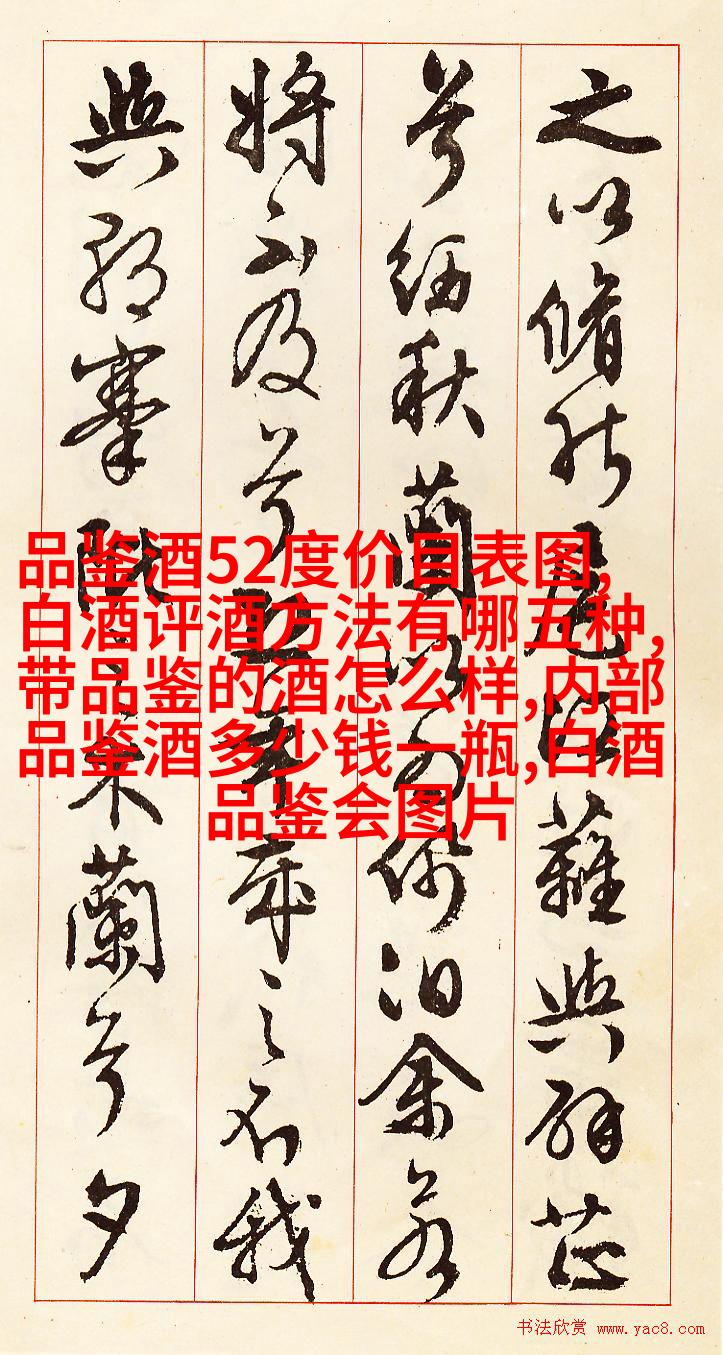 之以脩能扈江蘺與辟芷
兮紉秋蘭以為佩汩余若
將不及兮恐年歲之不我
與朝搴阰之木蘭兮夕
品鉴酒52度价目表图,
白酒评酒方法有哪五种,
带品鉴的酒怎么样,内部
品鉴酒多少钱一瓶,白酒
品鉴会图片
书法欣赏 www.yac8.com